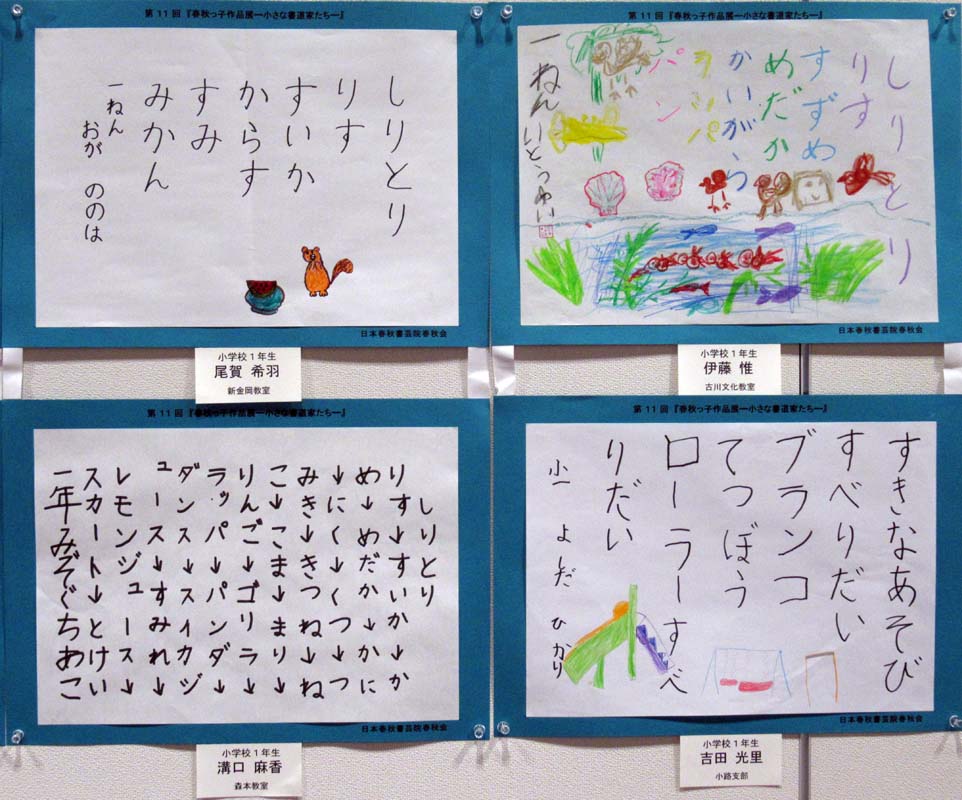 第11回『春秋っ子作品展ー小さな書道家たちー』
しりとり
りす
すいか
からす
すみ
みかん
一ねん おが ののは
日本春秋書芸院春秋会
小学校1年生
尾賀 希羽
新金岡教室
第11回『春秋っ子作品展ー小さな書道家たちー』
しりとり
りす
すずめ
めだか
かいがら
ラッパ
パン
一ねん いとうゆい
日本春秋書芸院春秋会
小学校1年生
伊藤 惟
古川文化教室
第11回『春秋っ子作品展ー小さな書道家たちー』
しりとり
りす↓すいか↓か
め↓めだか↓かに
↓にく↓くつ↓つ
みき↓きつね↓ね
こ↓こま↓まり↓
りんご↓ゴリラ↓
ラッパ↓パンダ↓
ダンス↓スイカジ
ュース↓すみれ↓
レモンジュース↓
スカート↓とけい
一年みぞぐちあこ
日本春秋書芸院春秋会
小学校1年生
溝口 麻香
森本教室
第11回『春秋っ子作品展ー小さな書道家たちー』
すきなあそび
すべりだい
ブランコ
てつぼう
ローラーすべ
りだい
小一 よしだ ひかり
日本春秋書芸院春秋会
小学校1年生
吉田 光里
小路支部